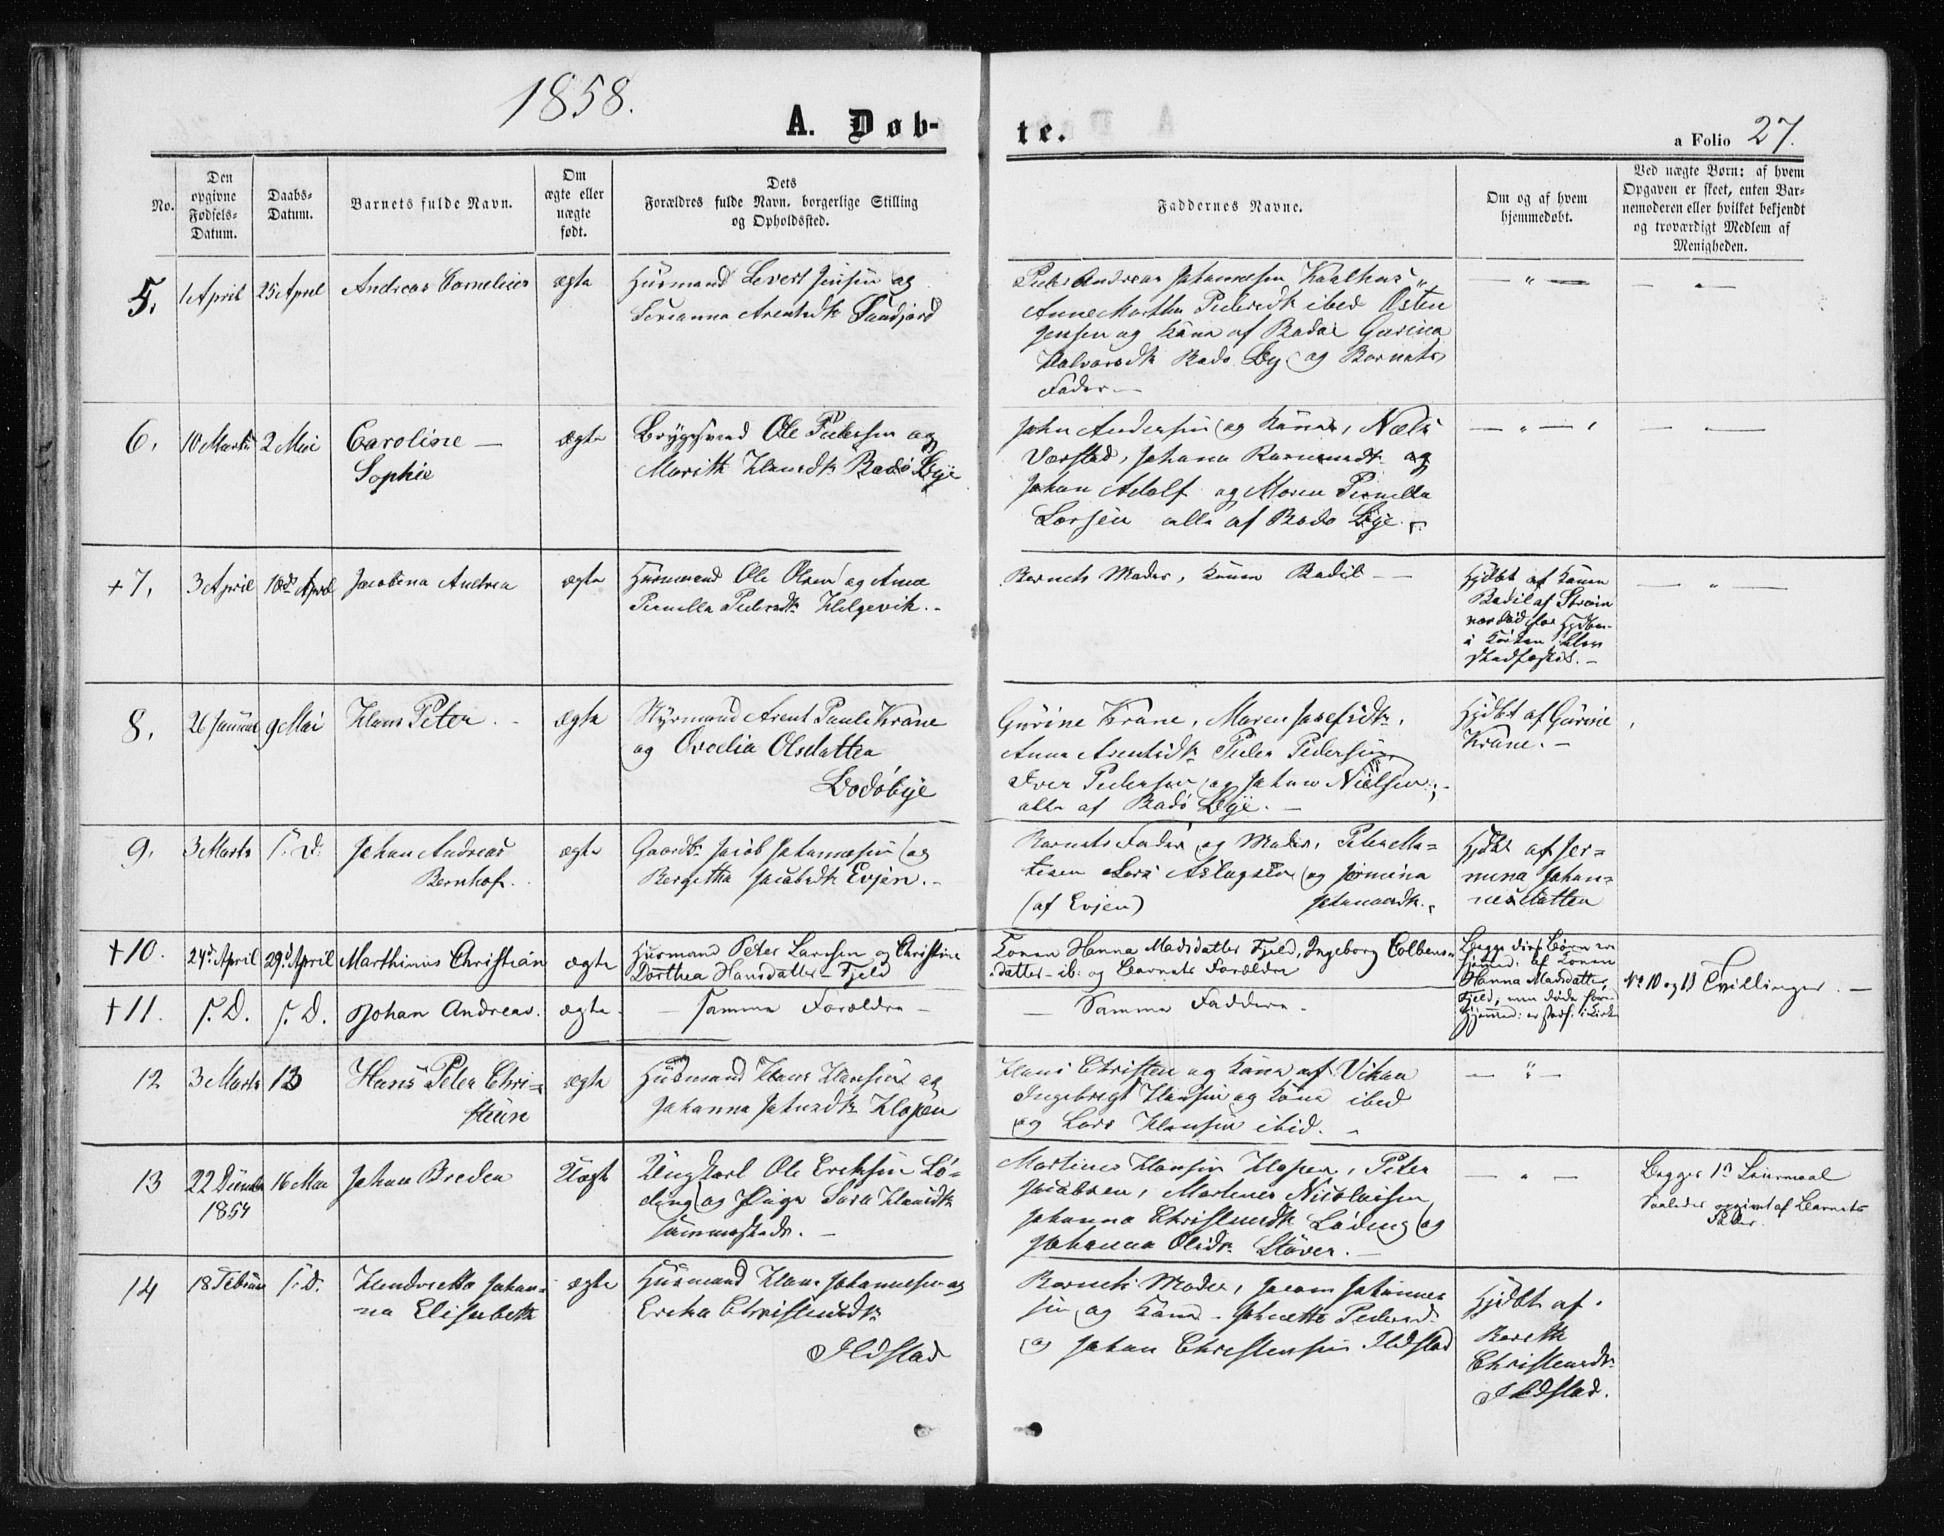 1858.
A. Døb-
te.
a Folio 27.
No.
Den
opgivne
Fødsels-
Datum.
Daabs-
Datum.
Barnets fulde Navn.
Om
ægte eller
uægte
født.
Dets
Forældres fulde Navn, borgerlige Stilling
og Opholdssted.
Faddernes Navne.
Om og af hvem
hjemmedøbt.
Ved uægte Børn: af hvem
Opgaven er skeet, enten Bar-
nemoderen eller hvilket bekjendt
og troværdigt Medlem af
Menigheden.
5.
1 April
25 April
Andreas Cornelius
ægte
Huusmand Sivert Jensen og
Arentsdtr
Peder Andreas Johannesen
Anne Martha Pedersdtr ibid Østen
Jensen og Kone af Bodøe Gurina
Bodø By og Barnets
Fader
6.
10 Marts
2 Mai
Caroline
Sophie
ægte
Ole Pedersen og
Marith Hansdtr Bodø Bye
John Andersen og Kone, Niels
Værstad, Johana Rasmusdtr og
Johan Adolf og Maren Pernella
Larsen alle af Bodø Bye.
+7.
3 April
April
Jacobina Andrea
ægte
Huusmand Ole Olsen og Anne
Pernella Pedersdtr Helgevik.
Barnets Moder, Konen Bodil
Hjdbt af Konen
Bodil af Strøm
8.
26 Januar
9 Mai
Hans Peter
ægte
Styrmand Arent Paul Krane
og Ovedia Olsdatter
Bodøbye
Gurine Krane, Maren Josefsdtr,
Anna Arentsdtr Peder Pedersen,
Iver Pedersen og Johan Nielsen
alle af Bodø Bye.
Hjdbt af Gurine
Krane.
9.
3 Marts
s. D.
Johan Andreas
Bernhof.
ægte
Gaardm Jacob Johannesen og
Bergitha Jacobsdtr Evjen.
Barnets Fader og Moder, Peter Ma-
tisen Lars Aslagsen og Jermina
(af Evjen)
Johannesdtr.
Hjdbt af Jer-
mina Johan-
nesdatter
+10.
24de April
29d April
Marthinus Christian
ægte
Huusmand Peter Larsen og Christine
Dorthea Hansdatter Fjeld
Konen Hanna Madsdatter Fjeld, Ingeborg Colbens-
datter - ib: og Barnets Forældre
Begge disse Børn er
hjemmed: af Konen
Hanna Madsdatter
Fjeld, men døde før
Hjemmed: er stadf. i Kirken
No 10 og 11 Tvillinger.
+11.
s. D.
s. D.
Johan Andreas.
ægte
Samme Forældre
Samme Faddere
12
3 Marts
13
Hans Peter Chri-
stian
ægte
Huusmand Hans Hansen og
Johanna Johnsdtr Hopen
Hans Christen og Kone af Vikan
Ingebregt Hansen og Kone ibid
og Lars Hansen ibid.
13
22 Decemb
1857
16 Mai
Johan Breder
Uægte
Ungkarl Ole Eriksen Lø-
ding og Pige Sara Hansdtr
sammesteds.
Martinus Hansen Hopen, Peter
Jacobsen, Martinus Nicolaisen
Johanna Christensdtr Løding og
Johanna Olsdtr Støver.
Begges 1ste Leiermaal
Saaledes opgivet af Barnets
Fader.
14
18 Februar
s. D.
Hendrikke Johan-
na Elisabeth
ægte
Huusmand Hans Johannesen og
Ericha Christensdtr
Ildstad
Barnets Moder, Johannes
sen og Kone Pedersd
og Johan Christensen Ildstad
Hjdbt af
Bereth
Christensdtr
Ildstad.